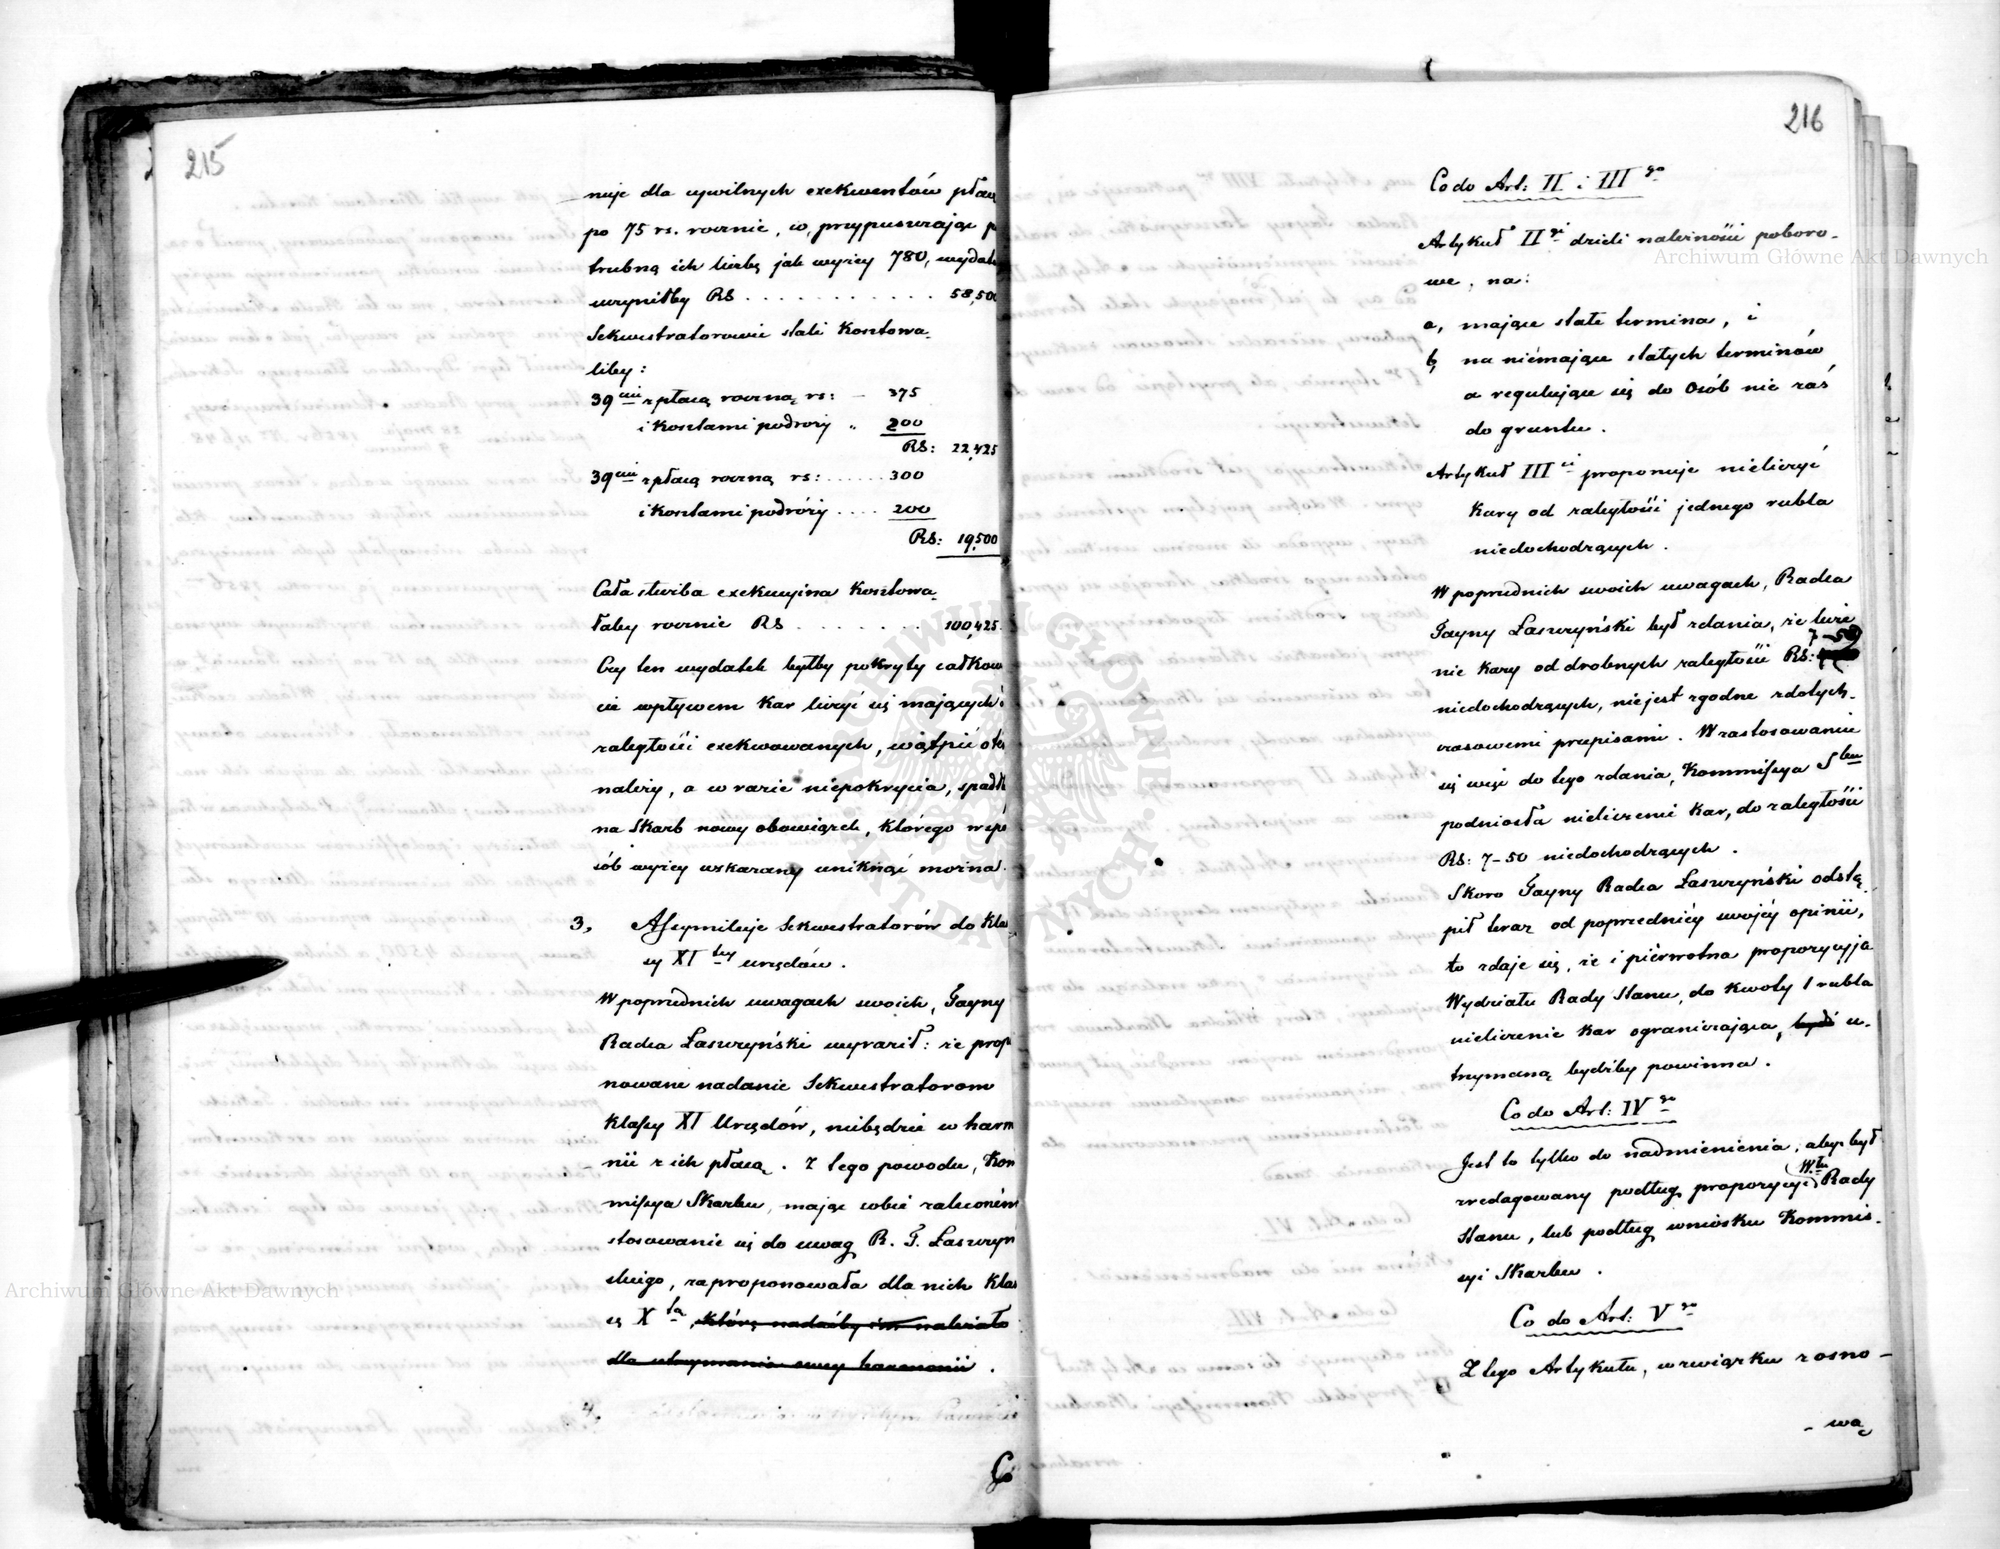 215
nuje dla cywilnych exekwentów płacę
po 75 rs. rocznie, co, przypuszczając p
trzebną ich liczbę jak wyżej 780, wydatek
uczyniłby RS . . . . . . . . . . . 58,500
Sekwestratorowie stali kosztowa-
liby:
39ciu z płacą roczną rs: — 375
i kosztami podróży „ 200
RS: 22,425
39ciu z płacą roczną rs: . . . . . . 300
i kosztami podróży . . . . 200
RS: 19,500
Cała służba exekucyjna kosztowa-
łaby rocznie RS . . . . . . . 100,425.
Czy ten wydatek byłby pokryty całkow
cie wpływem kar liczyć się mających
zaległości exekwowanych, wątpić o tem
należy, a w razie niepokrycia, spadł
na Skarb nowy obowiązek, którego w spo
sób wyżej wskazany uniknąć można.
3, Assymiluje Sekwestratorów do kla
sy XI tej urzędów.
W poprzednich uwagach swoich, Tayny
Radca Łaszczyński wyraził: że prop
nowane nadanie Sekwestratorom
klassy XI Urzędów, niebędzie w harm
nii z ich płacą. Z tego powodu, Kom
missya Skarbu, mając sobie zaleconém
stosowanie się do uwag R. T. Łaszczyń
skiego, zaproponowała dla nich kla
sę X tą, którą nadaćby im należało
dla utrzymania owey harmonii.
4,
Co
216
Co do Art: II i III go
Artykuł II gi dzieli należności poboro-
we, na:
a, mające stałe termina, i
b, na niémające stałych terminów
a regulujące się do osób nie zaś
do gruntu.
Artykuł III ci proponuje nieliczyć
kary od zaległości jednego rubla
niedochodzących.
W poprzednich swoich uwagach, Radca
Tayny Łaszczyński był zdania, że licze
nie kary od drobnych zaległości RS: 7-50
niedochodzących, niejest zgodne z dotych-
czasowemi przepisami. W zastosowaniu
się więc do tego zdania, Kommissya S bu
podniosła nieliczenie kar, do zaległości
RS: 7-50 niedochodzących.
Skoro Tayny Radca Łaszczyński odstą-
pił teraz od poprzedniéy swojéy opinii,
to zdaje się, że i piérwotna propozycyja
Wydziału Rady Stanu, do kwoty 1 rubla
nieliczenie kar ograniczająca, być u-
trzymaną byćby powinna.
Co do Art: IV go
Jest to tylko do nadmienienia, aby był
zredagowany podług propozycyi W.łu Rady
Stanu, lub podług wniosku Kommis-
syi Skarbu.
Co do Art: V go
Z tego Artykułu, w związku z osno-
- wą
Archiwum Główne Akt Dawnych
Archiwum Główne Akt Dawnych
ARCHIWUM GŁÓWNE AKT DAWNYCH